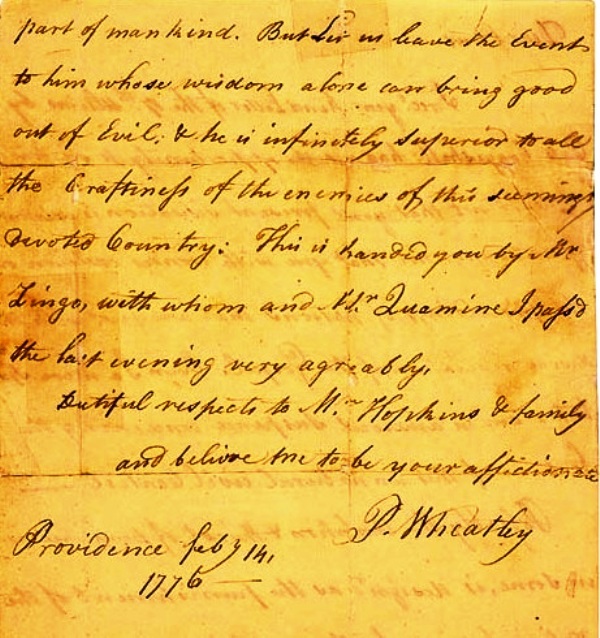 part of mankind. But let us leave the Event
to him whose wisdom alone can bring good
out of Evil. & he is infinitely superior to all
the Craftiness of the enemies of this seemingly
devoted Country: This is handed you by Mr
Lingo, with whom and Mr Quamine I pass'd
the last evening very agreably,
Dutiful respects to Mrs Hopkins & family
and believe me to be your affictionate
P. Wheatley
Providence feby 14,
1776